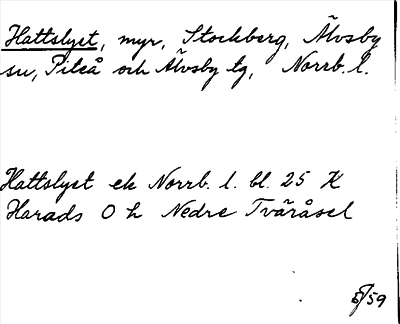 Hattslyet, myr, Stockberg, Älvsby
sn, Piteå och Älvsby tg, Norrb. l.
Hattslyet ek Norrb. l. bl. 25 K
Harads O h Nedre Tväråsel
5/59